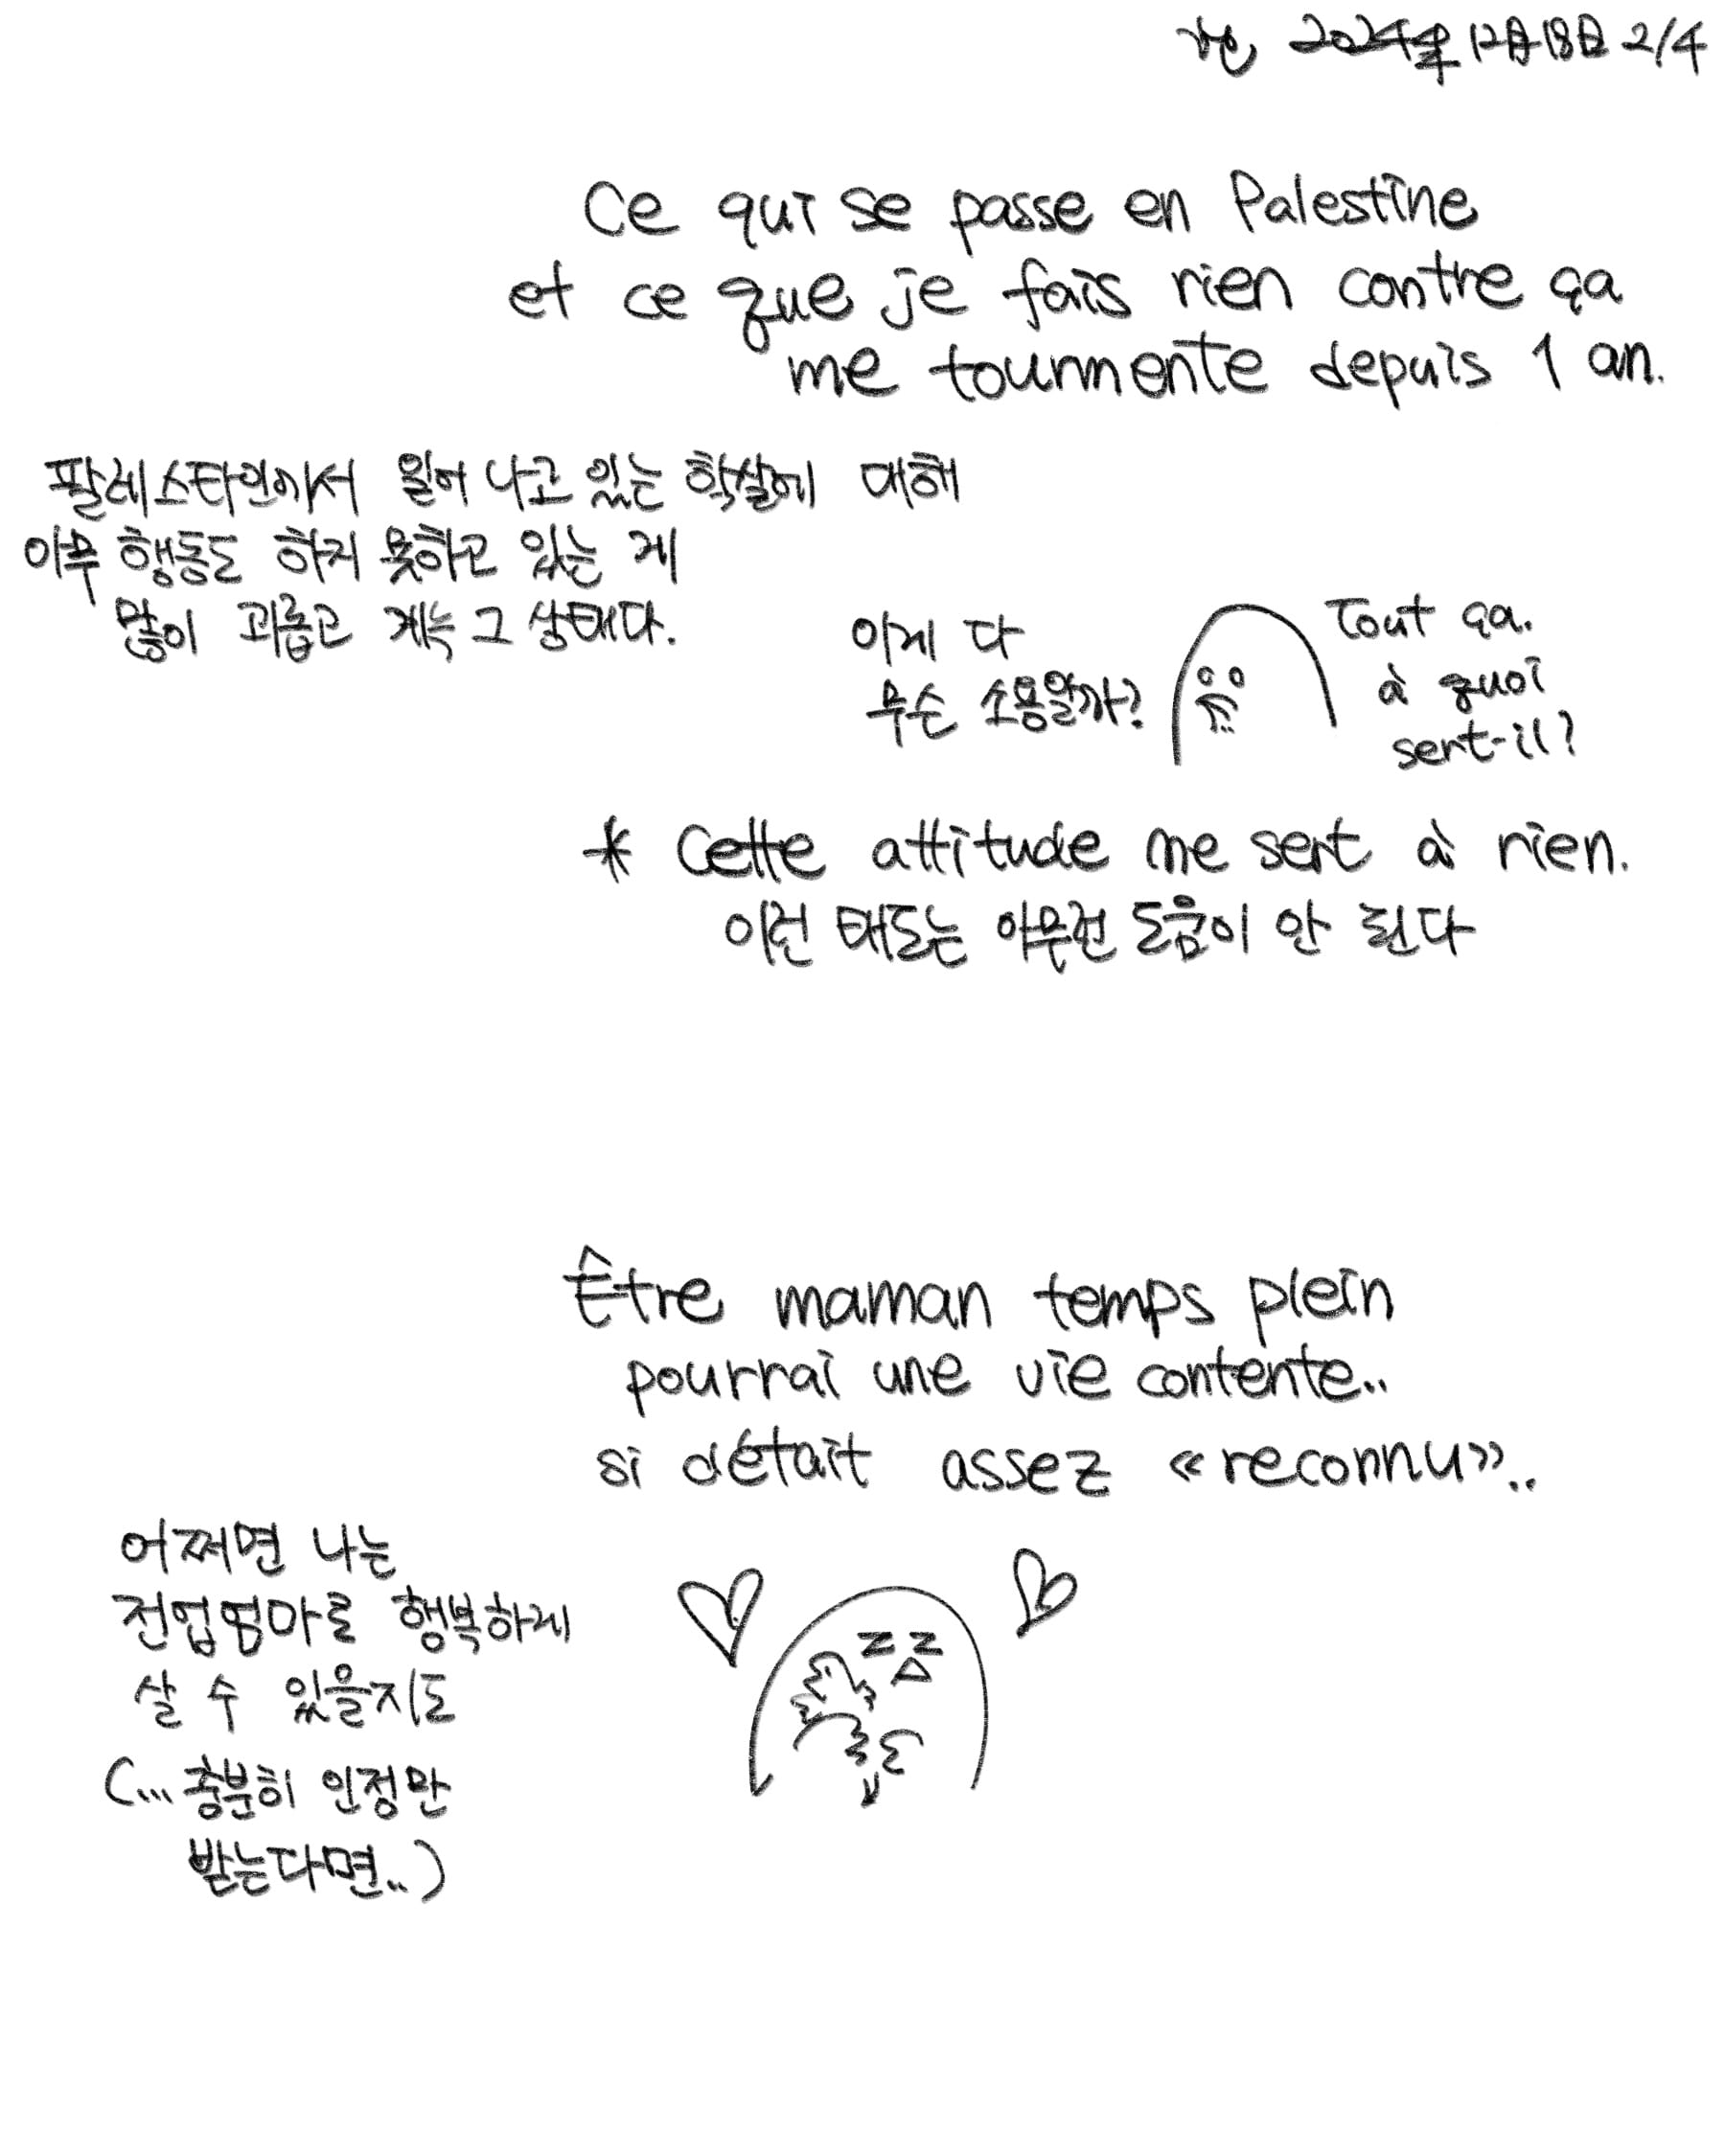 2024年12月18日 2/4
Ce qui se passe en Palestine
et ce que je fais rien contre ça
me tourmente depuis 1 an.
팔레스타인에서 일어나고 있는 학살에 대해
아무 행동도 하지 못하고 있는 게
많이 괴롭고 계속 그 상태다.
이게 다
무슨 소용일까?
Tout ça.
à quoi
sert-il?
* Cette attitude me sert à rien.
이런 태도는 아무런 도움이 안 된다
Être maman temps plein
pourrai une vie contente..
si c'était assez «reconnu»..
어쩌면 나는
전업엄마로 행복하게
살 수 있을지도
(... 충분히 인정만
받는다면..)